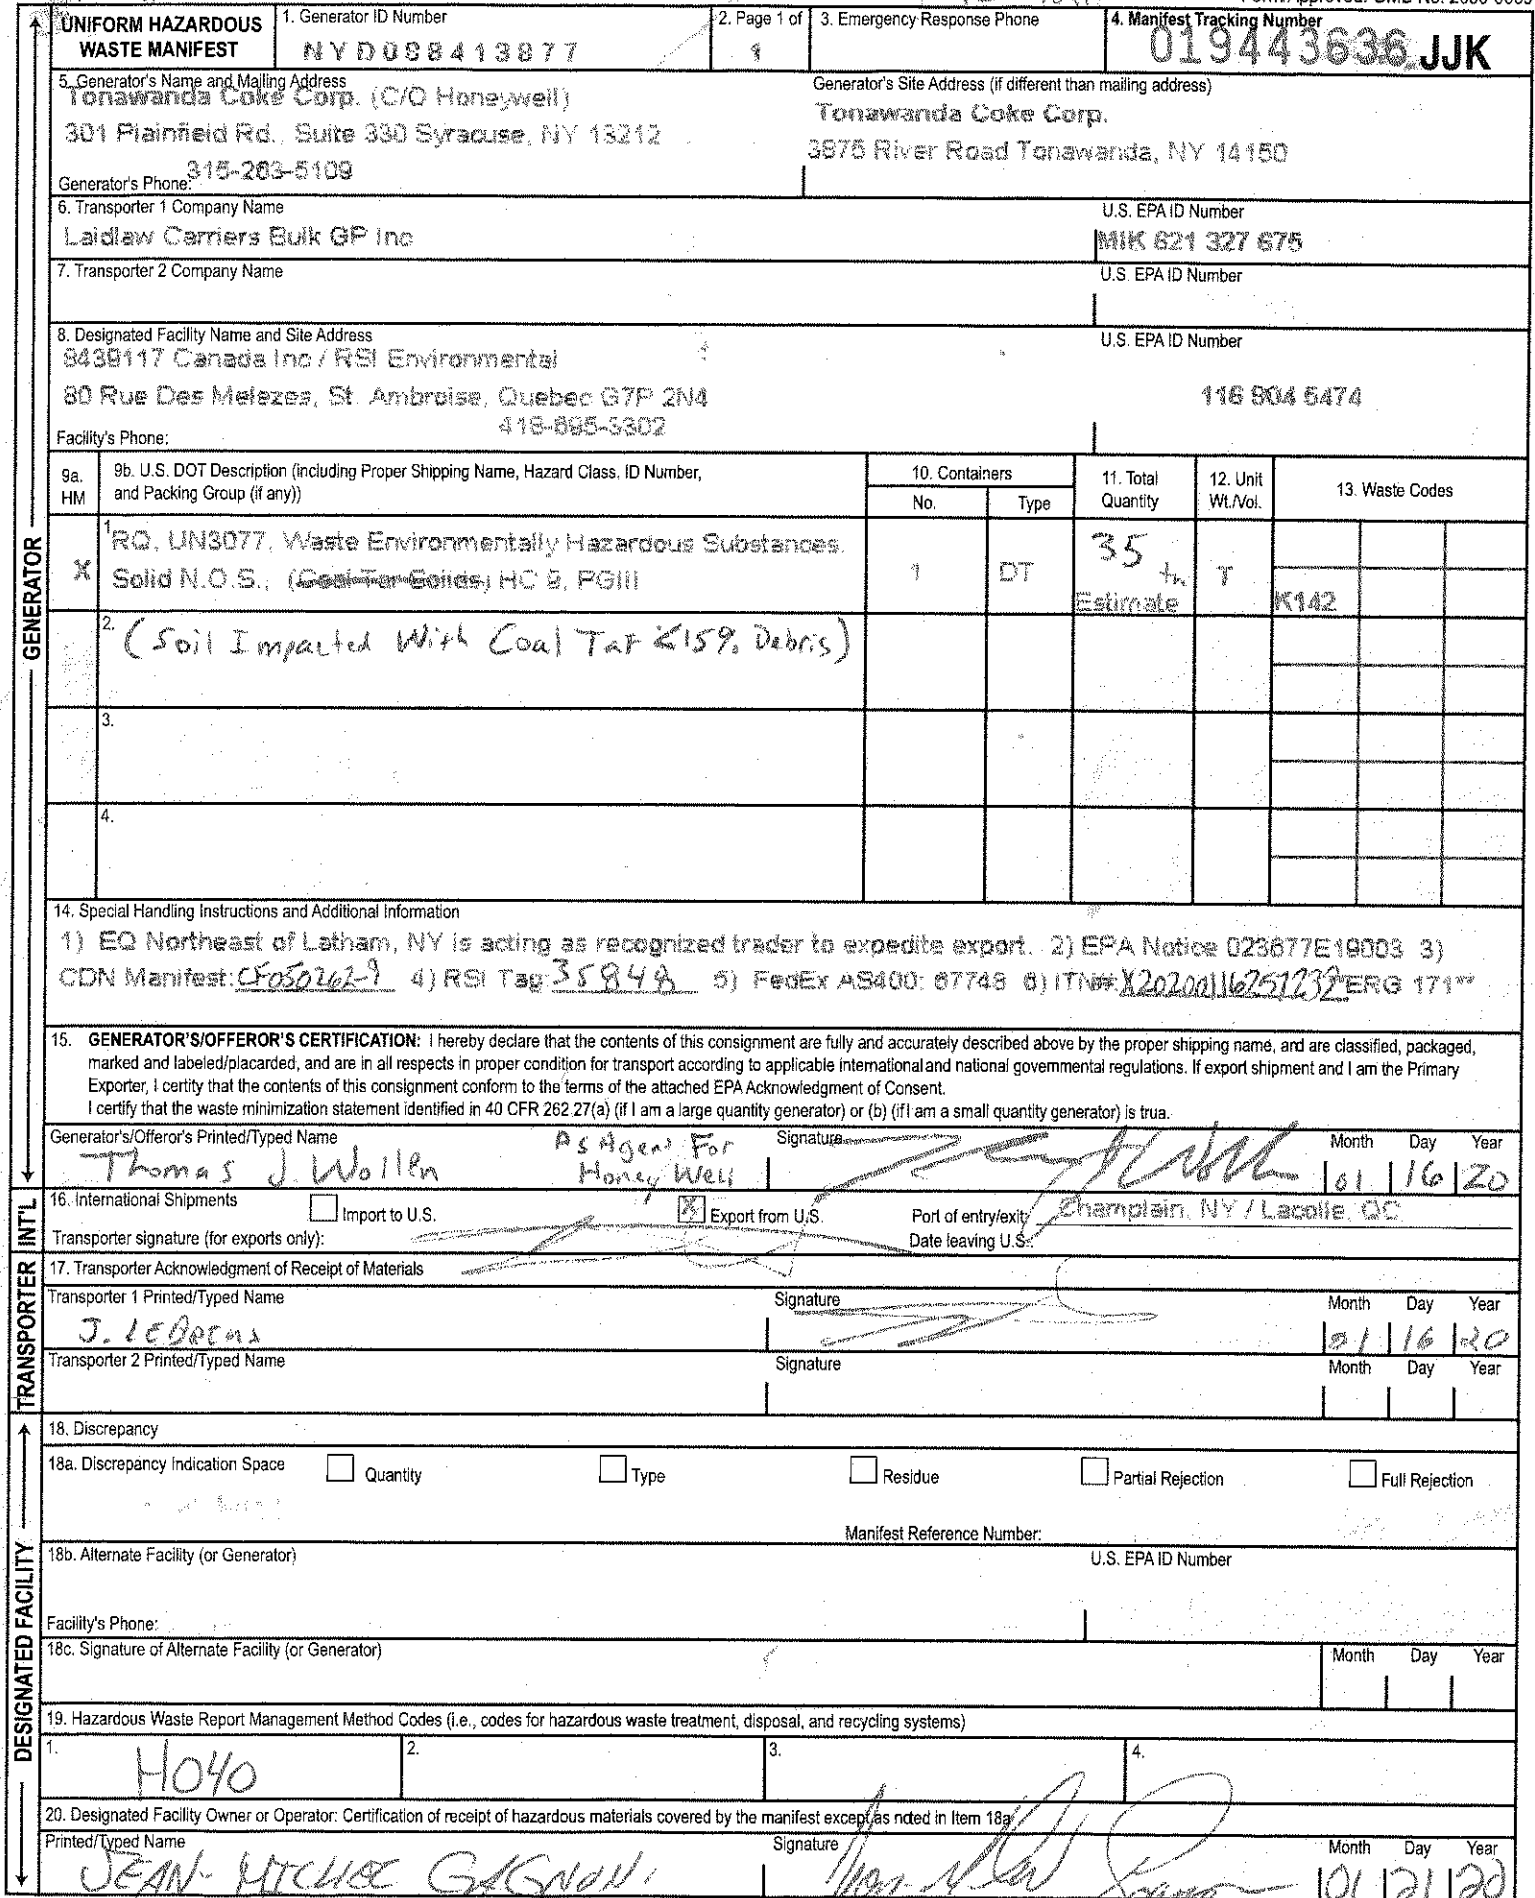 UNIFORM HAZARDOUS
WASTE MANIFEST
1. Generator ID Number
NYD088413877
2. Page 1 of
1
3. Emergency Response Phone
4. Manifest Tracking Number
019443636 JJK
5. Generator's Name and Mailing Address
Tonawanda Coke Corp. (C/O Honeywell)
301 Plainfield Rd., Suite 330 Syracuse, NY 13212
315-263-5109
Generator's Phone:
Generator's Site Address (if different than mailing address)
Tonawanda Coke Corp.
3875 River Road Tonawanda, NY 14150
6. Transporter 1 Company Name
Laidlaw Carriers Bulk GP Inc
U.S. EPA ID Number
MIK 621 327 675
7. Transporter 2 Company Name
U.S. EPA ID Number
8. Designated Facility Name and Site Address
8439117 Canada Inc / RSI Environmental
80 Rue Des Melezes, St. Ambroise, Quebec G7P 2N4
418-695-3302
Facility's Phone:
U.S. EPA ID Number
116 904 5474
9a.
HM
9b. U.S. DOT Description (including Proper Shipping Name, Hazard Class, ID Number,
and Packing Group (if any))
10. Containers
No.
Type
11. Total
Quantity
12. Unit
Wt./Vol.
13. Waste Codes
X
1.
RQ, UN3077, Waste Environmentally Hazardous Substances.
Solid N.O.S., (Coal Tar Solids) HC 9, PGIII
1
DT
35 tn
Estimate
T
K142
2.
(Soil Impacted With Coal Tar <15% Debris)
3.
4.
14. Special Handling Instructions and Additional Information
1) EQ Northeast of Latham, NY is acting as recognized trader to expedite export. 2) EPA Notice 023677E19003 3)
CDN Manifest: CF050262-9 4) RSI Tag: 35848 5) FedEx AS400: 67748 6) ITN#: X20200116251232 *ERG 171**
15. GENERATOR'S/OFFEROR'S CERTIFICATION: I hereby declare that the contents of this consignment are fully and accurately described above by the proper shipping name, and are classified, packaged,
marked and labeled/placarded, and are in all respects in proper condition for transport according to applicable international and national governmental regulations. If export shipment and I am the Primary
Exporter, I certify that the contents of this consignment conform to the terms of the attached EPA Acknowledgment of Consent.
I certify that the waste minimization statement identified in 40 CFR 262.27(a) (if I am a large quantity generator) or (b) (if I am a small quantity generator) is true.
Generator's/Offeror's Printed/Typed Name
Thomas J. Wollen
As Agent For
Honey Well
Signature
Month Day Year
01 16 20
16. International Shipments
Import to U.S.
X Export from U.S.
Port of entry/exit: Champlain, NY / Lacolle, QC
Transporter signature (for exports only):
Date leaving U.S.:
17. Transporter Acknowledgment of Receipt of Materials
Transporter 1 Printed/Typed Name
Signature
Month Day Year
01 16 20
Transporter 2 Printed/Typed Name
Signature
Month Day Year
18. Discrepancy
18a. Discrepancy Indication Space
Quantity
Type
Residue
Partial Rejection
Full Rejection
Manifest Reference Number:
18b. Alternate Facility (or Generator)
U.S. EPA ID Number
Facility's Phone:
18c. Signature of Alternate Facility (or Generator)
Month Day Year
19. Hazardous Waste Report Management Method Codes (i.e., codes for hazardous waste treatment, disposal, and recycling systems)
1.
H040
2.
3.
4.
20. Designated Facility Owner or Operator: Certification of receipt of hazardous materials covered by the manifest except as noted in Item 18a
Printed/Typed Name
JEAN-MICHEL GAGNON
Signature
Month Day Year
01 21 20
GENERATOR
INT'L
TRANSPORTER
DESIGNATED FACILITY